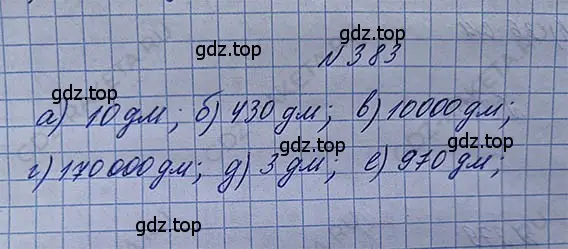 gdz.top
N 383
gdz.top gdz.top
а) 10 дм; б) 430 дм; в) 10000 дм;
г) 170 000 дм; д) 3 дм; е) 970 дм;
gdz.top gdz.top
gdz.top